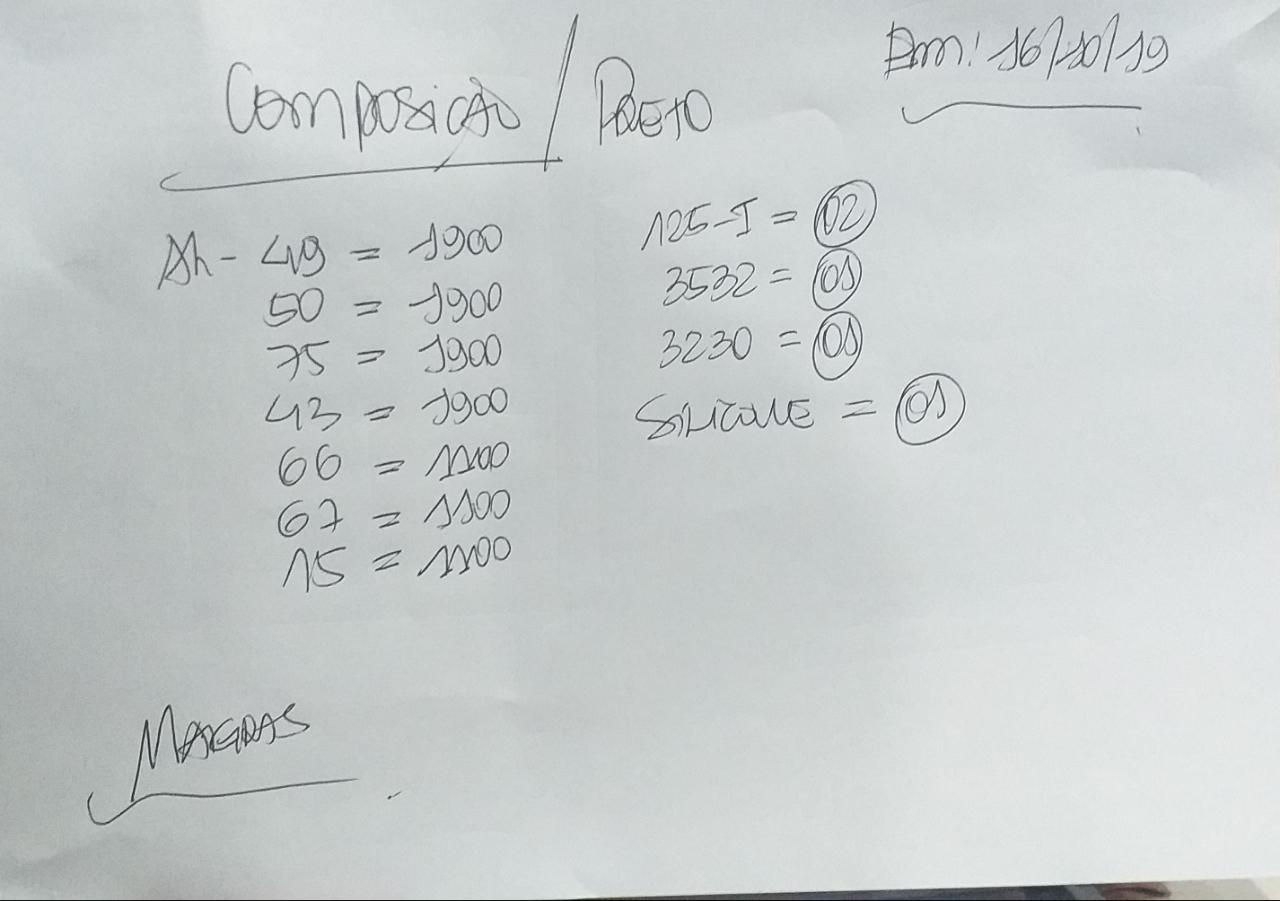 Em: 16/10/19
Composição / PRETO
Ah - 49 = 1900
50 = 1900
75 = 1900
43 = 1900
66 = 1100
67 = 1100
15 = 1100
125-I = 02
3532 = 01
3230 = 01
SILICONE = 01